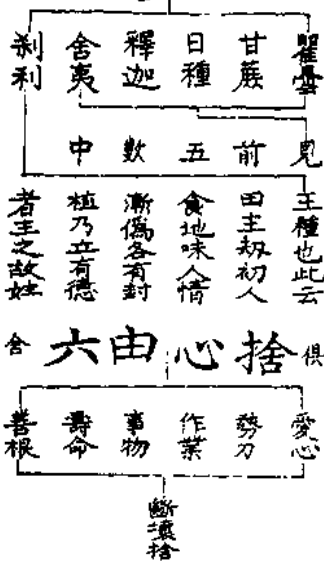 瞿曇
甘蔗
日種
釋迦
舍夷
刹利
見前五數中
王種也此云
田主劫初人
食地味人情
漸僞各有封
植乃立有德
者王之故姓
俱捨心由六舍
愛心
勢力
作業
事物
壽命
善根
斷壞捨